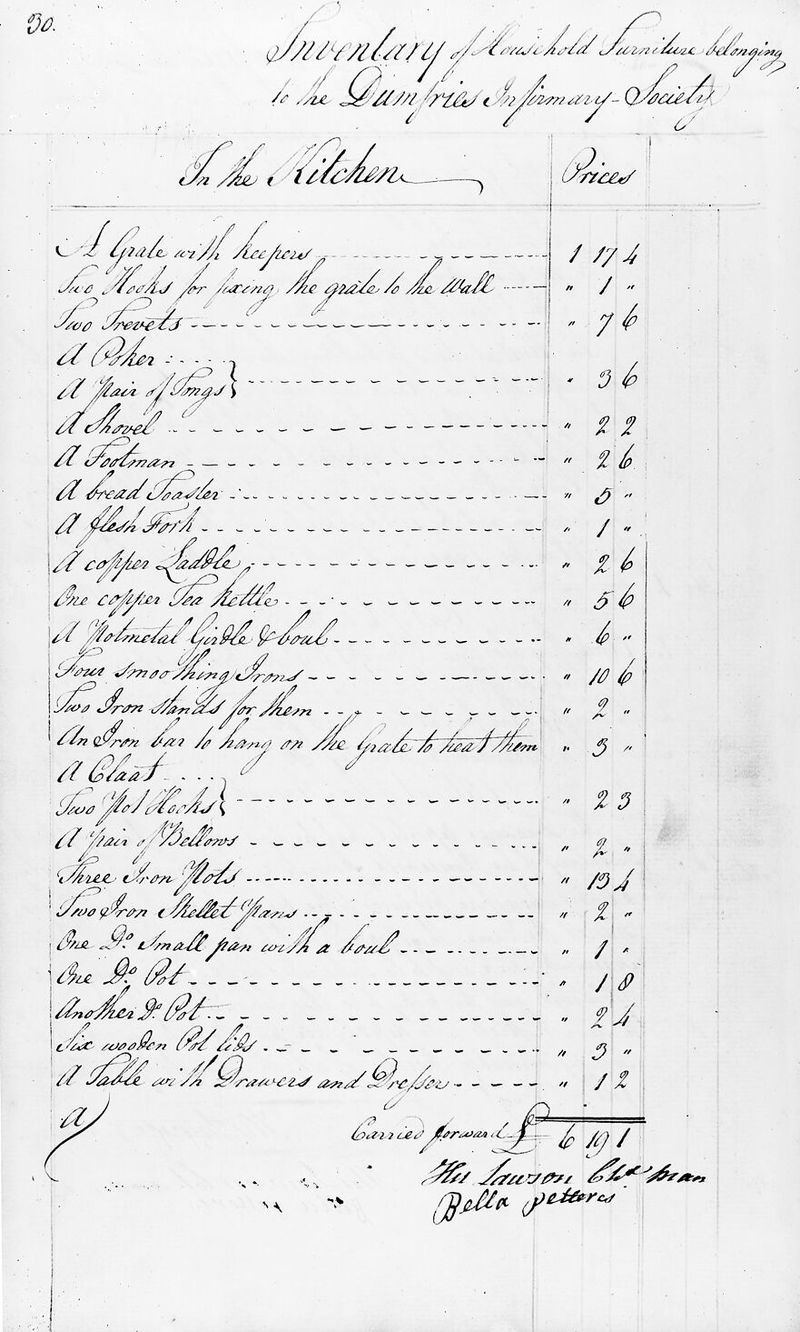 30.
Inventary of Household Furniture belonging
to the Dumfries Infirmary - Society
In the Kitchen Prices
A Grate with keepers 1 17 4
Two Hooks for fixing the grate to the Wall " 1 "
Two Trevets " 7 6
A Poker
A Pair of Tongs } " 3 6
A Shovel " 2 2
A Footman " 2 6
A bread Toaster " 5 "
A flesh Fork " 1 "
A copper Laddle " 2 6
One copper Tea kettle " 5 6
A Potmetal Girdle & boul " 6 "
Four smoothing Irons " 10 6
Two Iron stands for them " 2 "
An Iron bar to hang on the Grate to heat them " 3 "
A Claat
Two Pot Hooks } " 2 3
A Pair of Bellows " 2 "
Three Iron Pots " 13 4
Two Iron Skellet Pans " 2 "
One Do. small pan with a boul " 1 "
One Do. Pot " 1 8
Another Do. Pot " 2 4
Six wooden Pot lids " 3 "
A Table with Drawers and Dresser " 1 2
A
Carried forward £ 6 19 1
Lawson man
Bella petteres